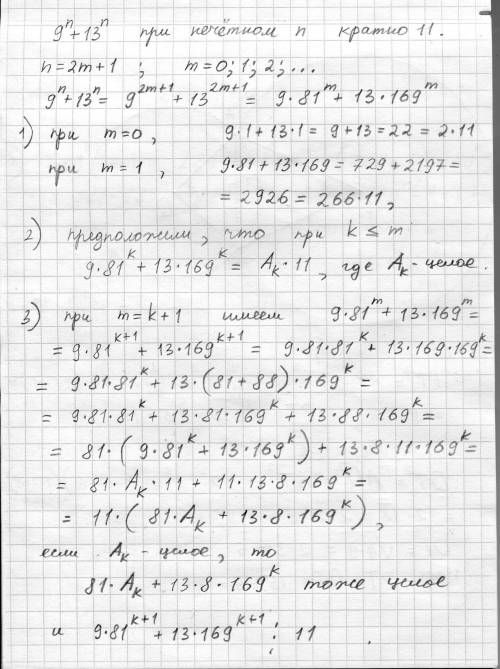 9ⁿ+13ⁿ при нечётном n кратно 11.
n=2m+1 ; m=0; 1; 2; ...
9ⁿ+13ⁿ= 9²ᵐ⁺¹+13²ᵐ⁺¹= 9·81ᵐ+13·169ᵐ
1) при m=0, 9·1+13·1= 9+13=22= 2·11
при m=1, 9·81+13·169= 729+2197=
= 2926=266·11,
2) предположили, что при k≤m
9·81ᵏ+13·169ᵏ= Aₖ·11, где Aₖ-целое.
3) при m=k+1 имеем 9·81ᵐ+13·169ᵐ=
= 9·81ᵏ⁺¹+13·169ᵏ⁺¹ = 9·81·81ᵏ+13·169·169ᵏ=
= 9·81·81ᵏ+13·(81+88)·169ᵏ=
= 9·81·81ᵏ+13·81·169ᵏ+13·88·169ᵏ=
= 81·(9·81ᵏ+13·169ᵏ)+13·8·11·169ᵏ=
= 81·Aₖ·11+11·13·8·169ᵏ=
= 11·(81·Aₖ+13·8·169ᵏ),
если Aₖ-целое, то
81·Aₖ+13·8·169ᵏ тоже целое
и 9·81ᵏ⁺¹+13·169ᵏ⁺¹⋮11.